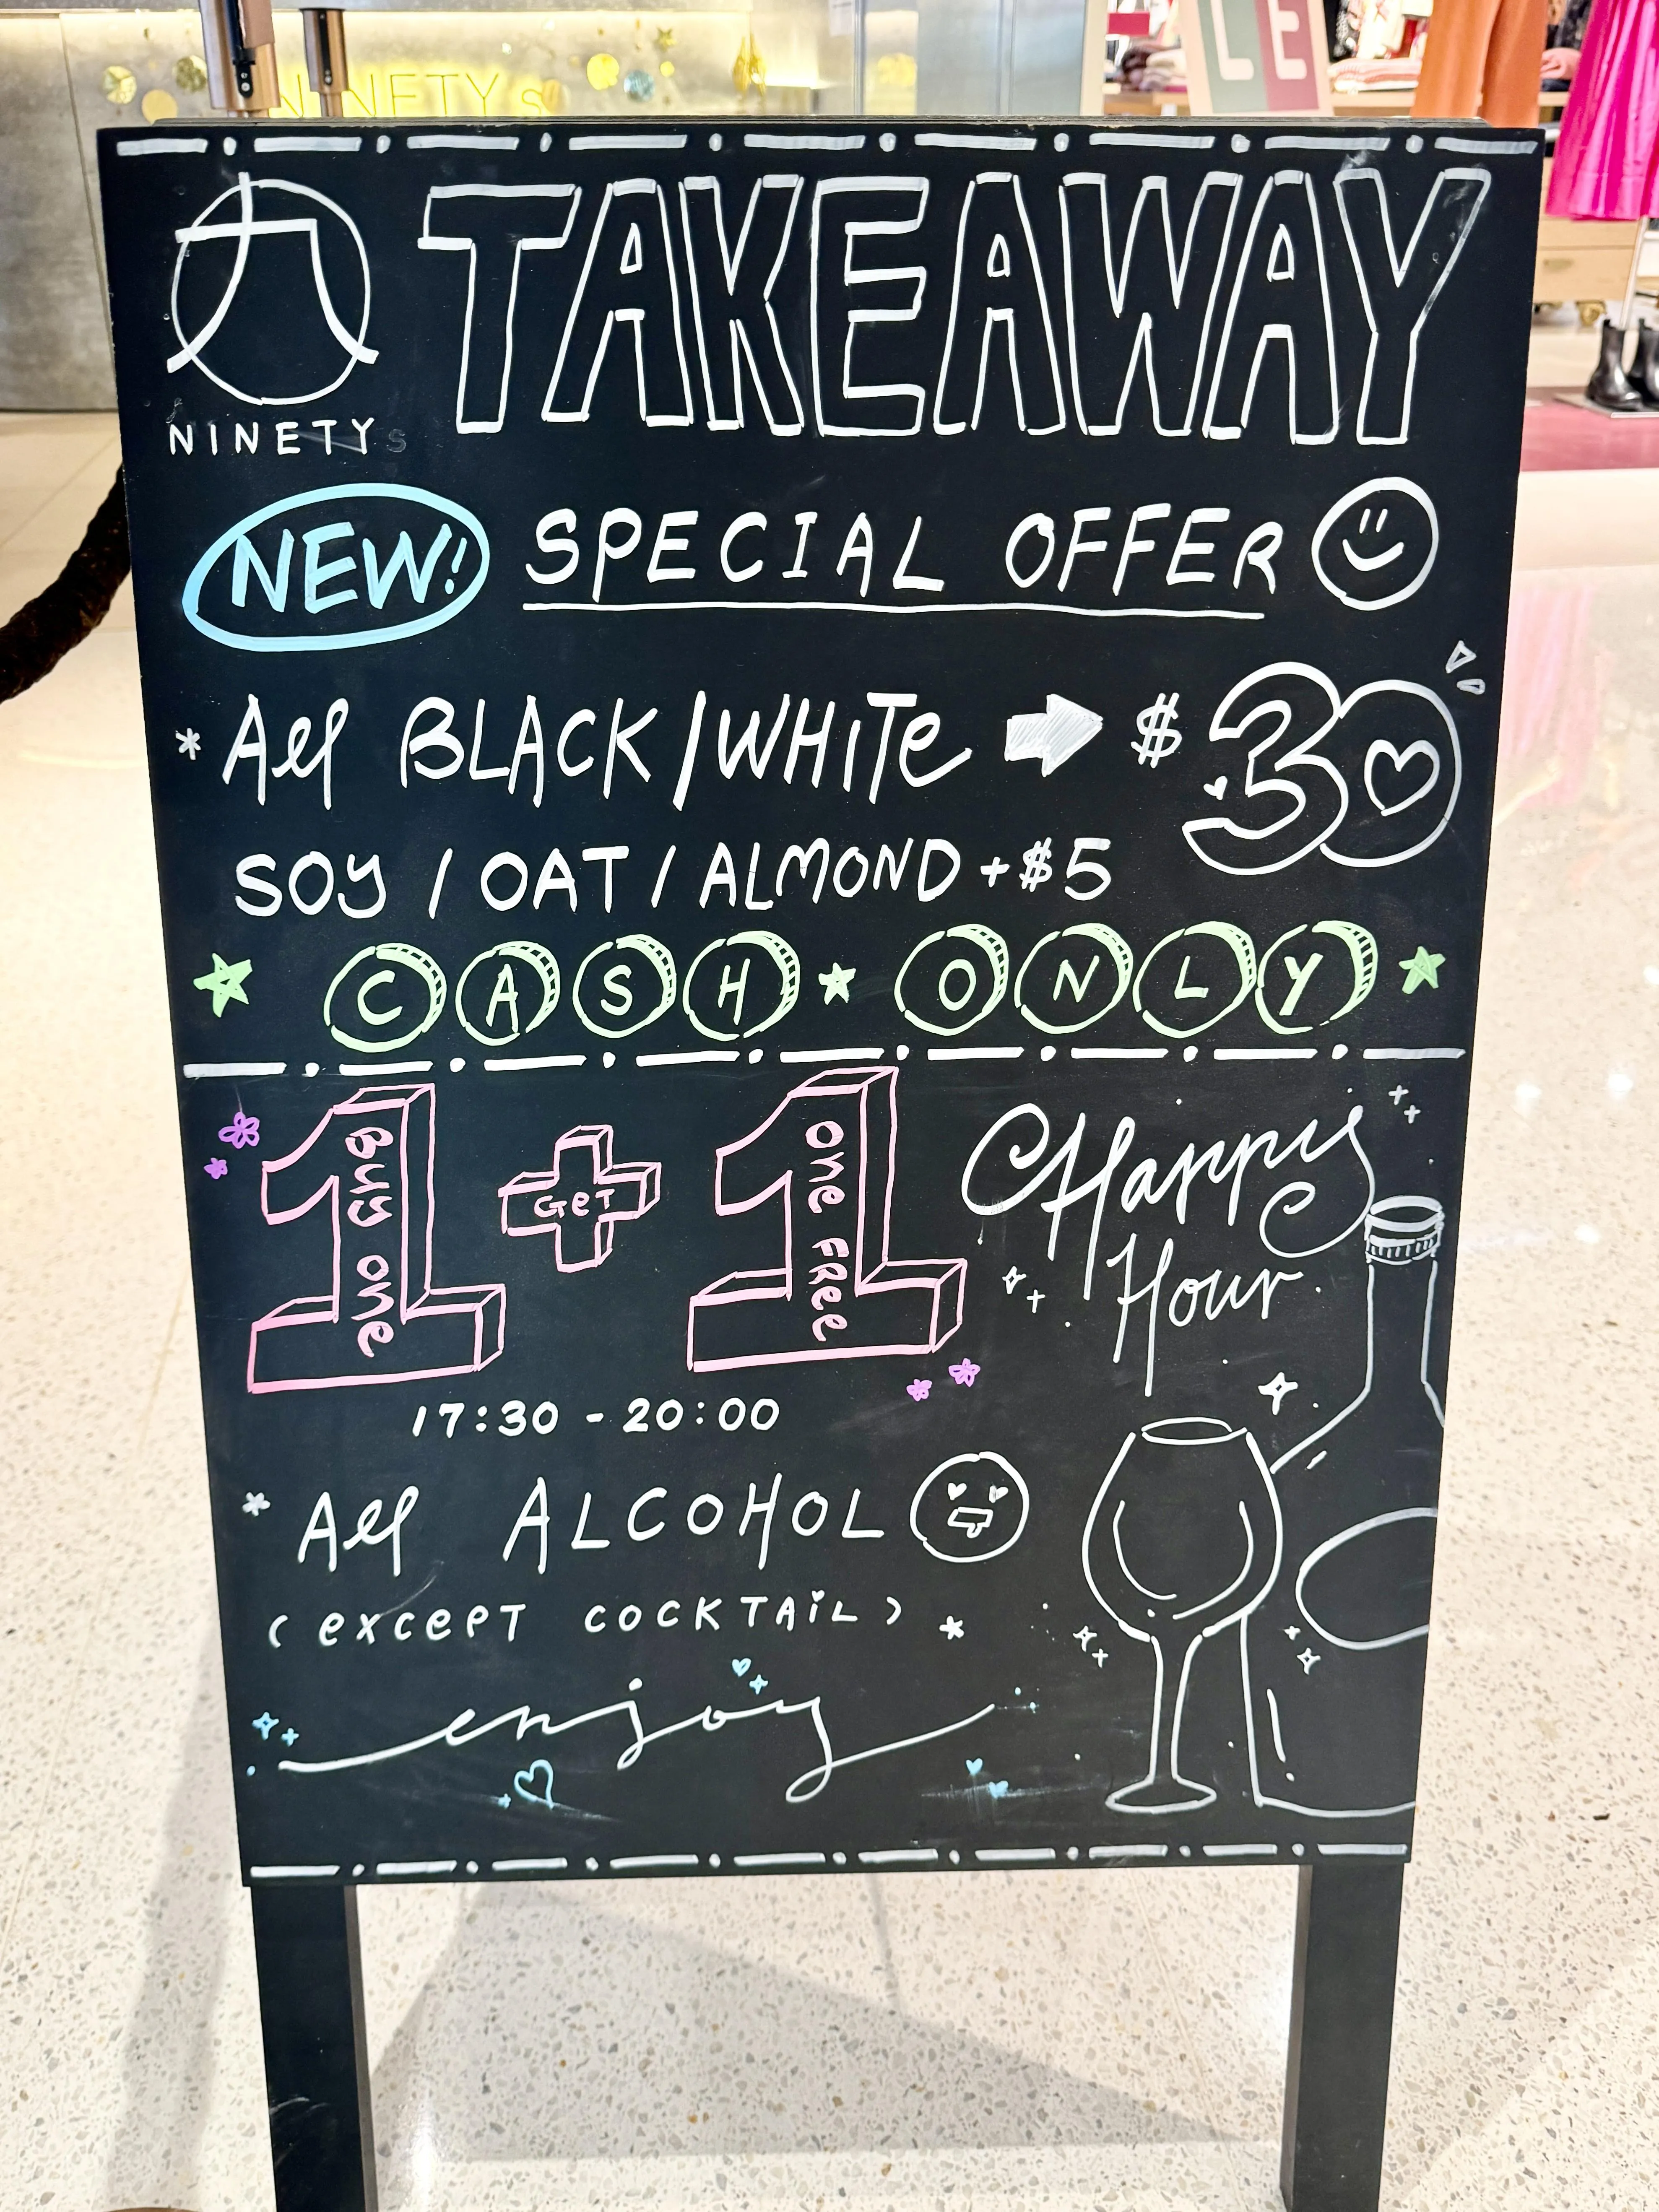 NINETYs
LE
九
NINETYs
TAKEAWAY
NEW! SPECIAL OFFER
* All BLACK/WHITE → $30
SOY / OAT / ALMOND +$5
CASH ONLY
1 + 1
Buy one GeT one FRee
Happy
Hour
17:30 - 20:00
* All ALCOHOL
(except COCKTAiL) *
enjoy